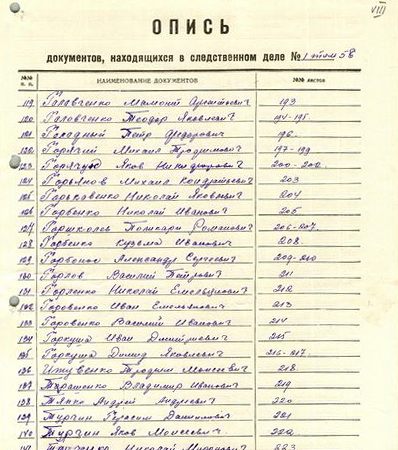 VIII
ОПИСЬ
документов, находящихся в следственном деле № 1 том 58
№№ п. п. НАИМЕНОВАНИЕ ДОКУМЕНТОВ №№ листов
119 Головченко Мамонт Арсентьевич 193
120 Головченко Теодор Яковлевич 194-195
121 Голодный Петр Федорович 196
122 Горячий Михаил Трофимович 197-199
123 Яков Никифорович 200-202
124 Горьянов Михаил Кондратьевич 203
125 Горьковенко Николай Яковлевич 204
126 Горбенко Николай Иванович 205
127 Горшколеп Поликарп Романович 206-207
128 Горбенко Кузьма Иванович 208
129 Горбонос Александр Сергеевич 209-210
130 Горлов Василий Петрович 211
131 Горленко Николай Емельянович 212
132 Горовенко Иван Емельянович 213
133 Горовенко Василий Иванович 214
134 Горкуша Иван Дмитриевич 215
135 Горкуша Демид Яковлевич 216-217
136 Трофим Моисеевич 218
137 Владимир Иванович 219
138 Тяпко Андрей Андреевич 220
139 Турчин Герасим Данилович 221
140 Турчин Яков Моисеевич 222
141 Николай Миронович 223